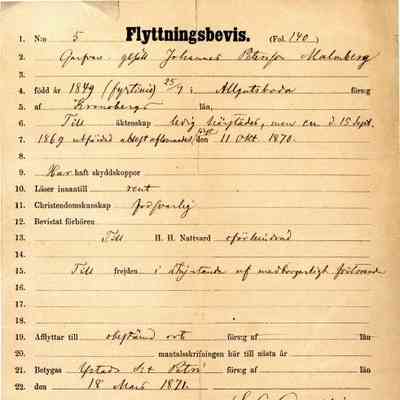 Flyttningsbevis. (Fol. 140)
1. N:o 5
2. Garfvaregesäll Johannes Petersson Malmberg
3.
4. född år 1849 (fyrtinio) 25/9 i Algutsboda förs:g
5. af Kronobergs län,
6. Till äktenskap ledig, men en d. 15 Sept.
7. 1869 utfärdad den 11 Okt 1870.
8.
9. Har haft skyddskoppor
10. Läser innantill rent
11. Christendomskunskap försvarlig
12. Bevistat förhören
13. Till H. H. Nattvard oförhindrad
14.
15. Till frejden i åtnjutande af medborgerligt förtroende
16.
17.
18.
19. Afflyttar till obestämd ort förs:g af län
20. mantalsskrifningen här till nästa år
21. Betygas Ystads S:t Petri förs:g af län
22. den 18 Mars 1871.